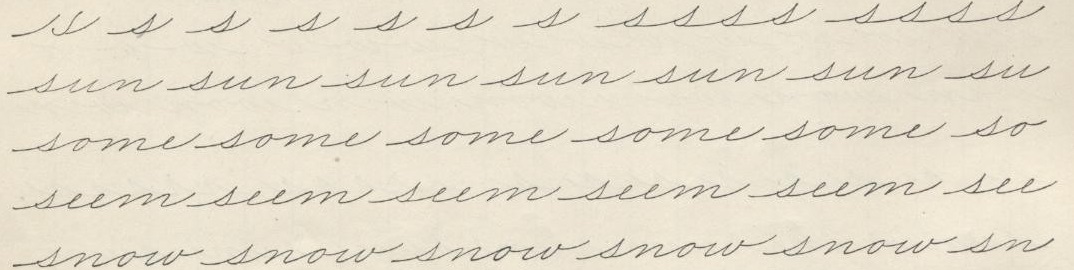 s s s s s s s ssss ssss
sun sun sun sun sun sun su
some some some some some so
seem seem seem seem seem see
snow snow snow snow snow sn